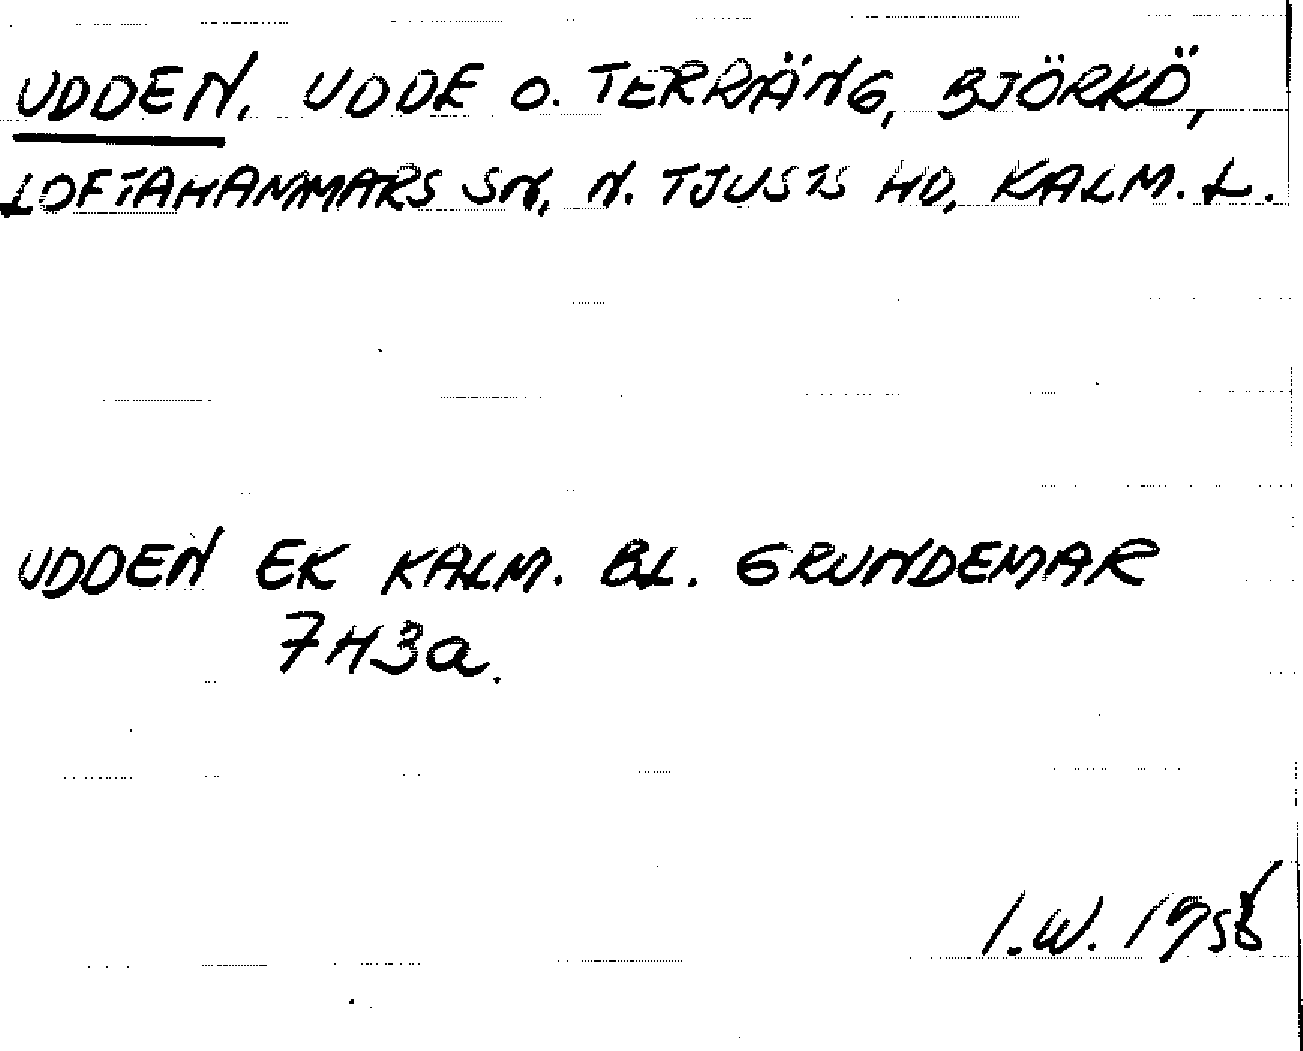 UDDEN, UDDE O. TERRÄNG, BJÖRKÖ,
LOFTAHAMMARS SN, N. TJUSTS HD, KALM. L.
UDDEN EK KALM. BL. GRUNDEMAR
7H3a.
I.W. 1958